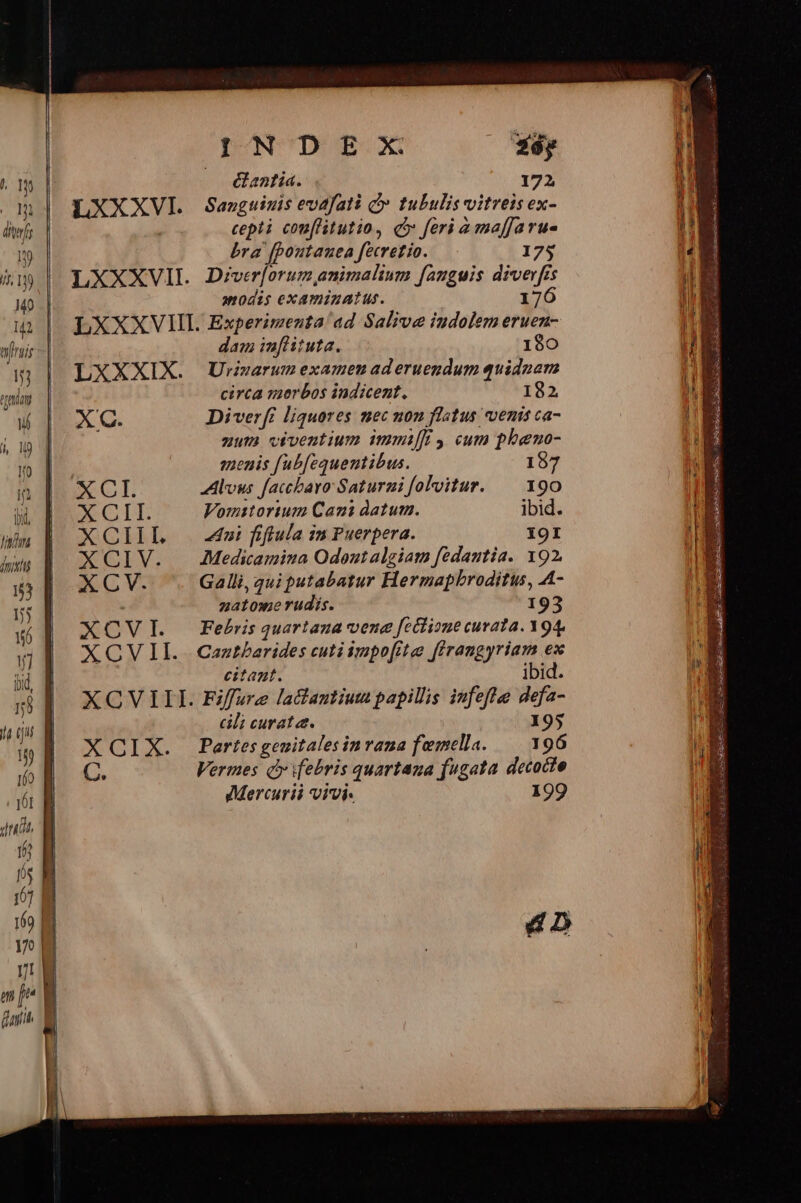 INDEX. 265
ctantia. 172
LXXXVI. Sanguinis evasati & tubulis vitreis ex-
cepti constitutio, & seri à massa ru-
bra spontanea secretio. 175
LXXXVII. Diversorum animalium sanguis diversis
modis examinatus. 176
LXXXVIII. Experimenta ad Salivæ indolem eruen-
dam instituta. 180
LXXXIX. Urinarum examen ad eruendum quidnam
circa morbos indicent. 182
XC. Diversi liquores nec non flatus venis ca-
num viventium immissi, cum phæno-
menis subsequentibus. 187
XCI. Alvus saccharo Saturni solvitur. 190
XCII. Vomitorium Cani datum. ibid.
XCIII. Ani fistula in Puerpera. 191
XCIV. Medicamina Odontalgiam sedantia. 192
XCV. Galli, qui putabatur Hermaphroditus, A-
natome rudis. 193
XCVI. Febris quartana venæ sectione curata. 194
XCVII. Cantharides cuti impositæ strangyriam ex
citant. ibid.
XCVIII. Fissuræ lactantium papillis infestæ defa-
cili curatæ. 195
XCIX. Partes genitales in rana fœmella. 196
C. Vermes & febris quartana fugata decocto
Mercurii vivi. 199
AD